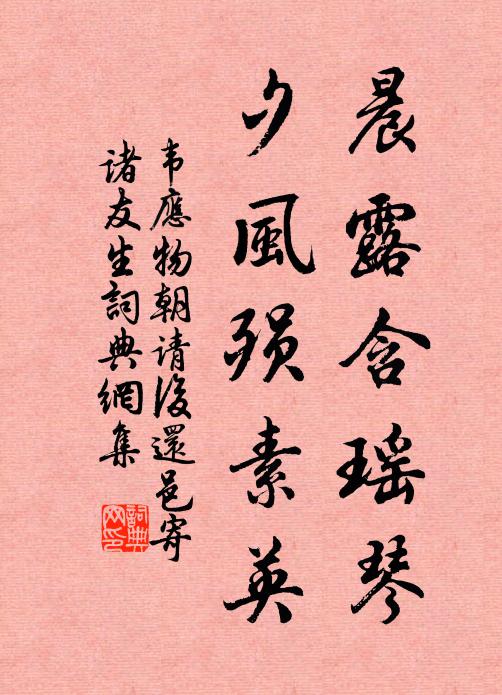 晨露含瑶琴
夕風殞素英
韦應物朝请後還邑寄
诸友生詞典網集
詞典
网印